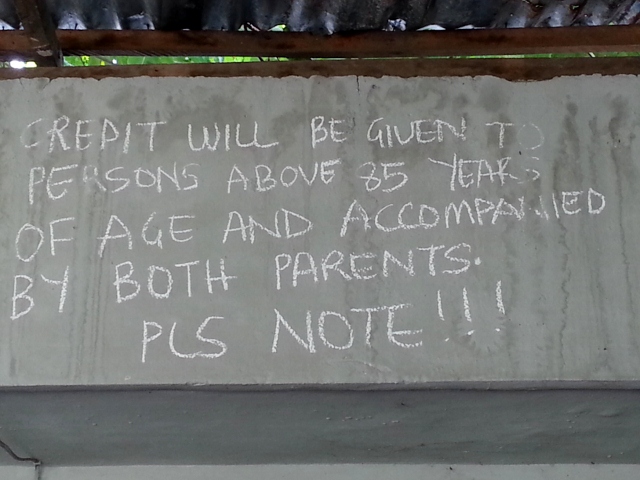 CREDIT WILL BE GIVEN TO
PERSONS ABOVE 85 YEARS
OF AGE AND ACCOMPANIED
BY BOTH PARENTS.
PLS NOTE!!!